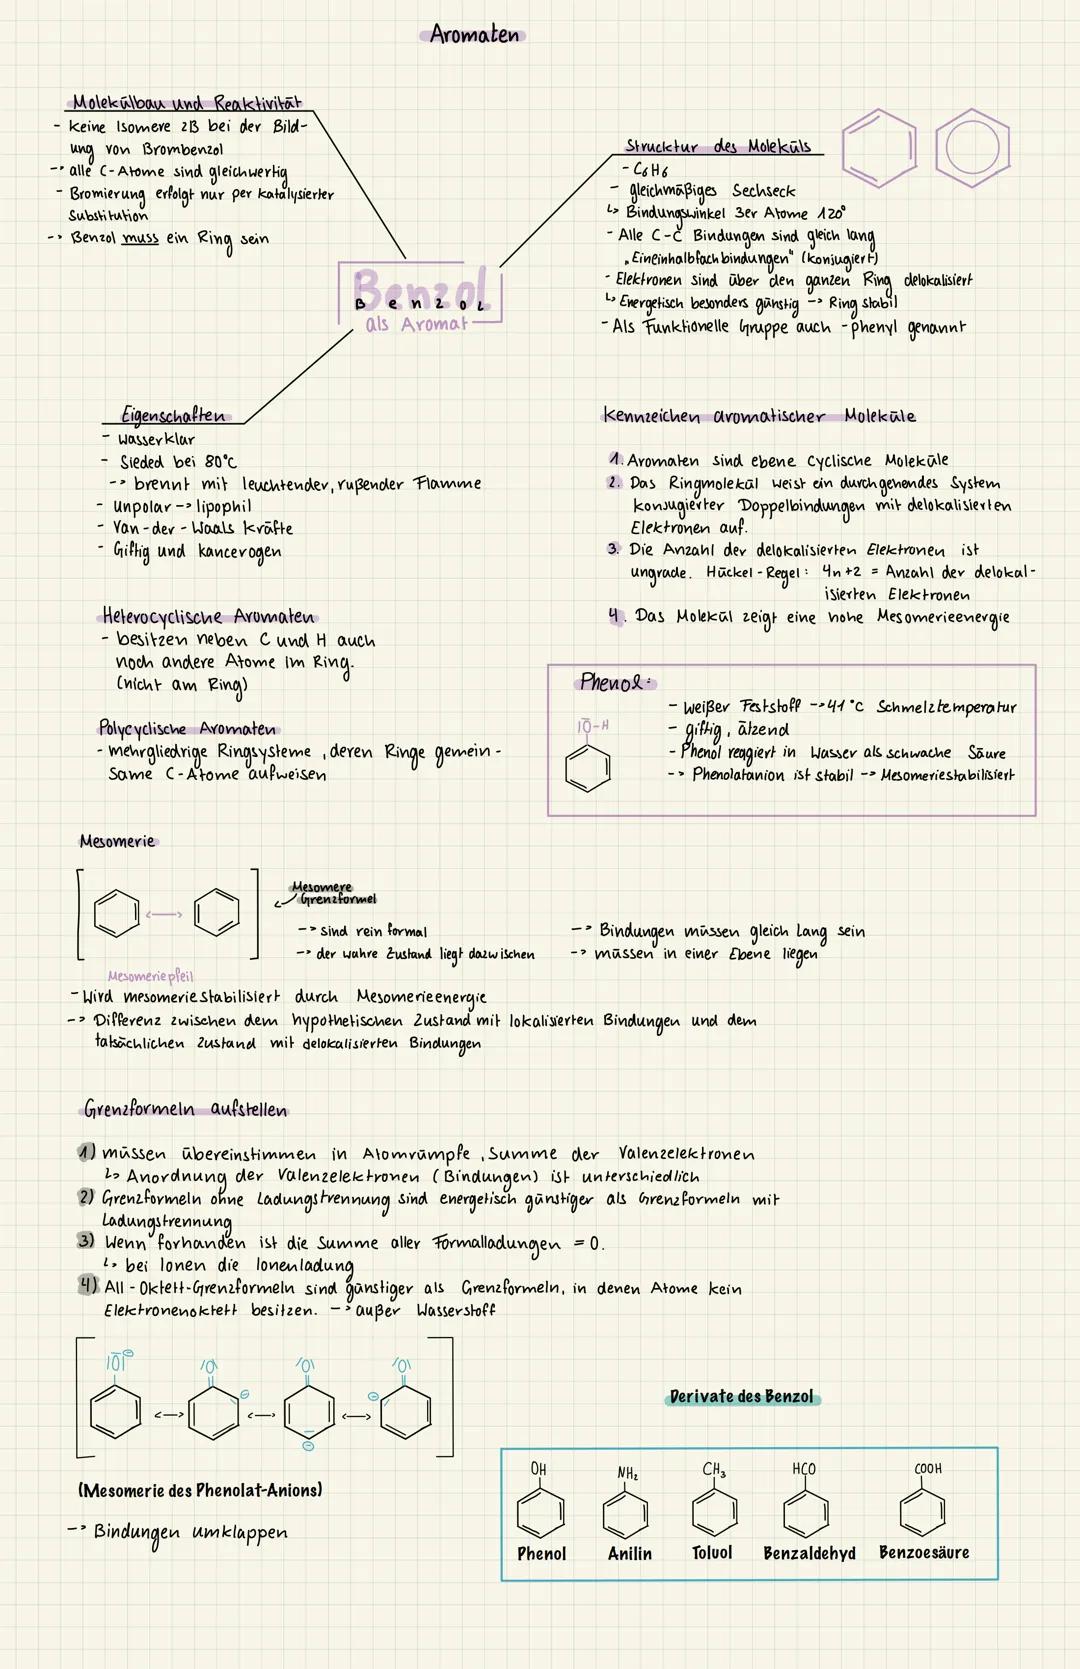 Aromaten
Molekülbau und Reaktivität
- keine Isomere zB bei der Bild-
ung von Brombenzol
-> alle C-Atome sind gleichwertig
- Bromierung erfolgt nur per katalysierter
Substitution
-> Benzol muss ein Ring sein
Strucktur des Moleküls
- C6H6
- gleichmäßiges Sechseck
↳ Bindungswinkel 3er Atome 120°
- Alle C-C Bindungen sind gleich lang
"Eineinhalbfachbindungen" (konjugiert)
- Elektronen sind über den ganzen Ring delokalisiert
↳ Energetisch besonders günstig -> Ring stabil
- Als Funktionelle Gruppe auch -phenyl genannt
Benzol
Benzol
als Aromat
Eigenschaften
- wasserklar
- Sieded bei 80°C
-> brennt mit leuchtender, rußender Flamme
- Unpolar -> lipophil
- Van-der-Waals Kräfte
- Giftig und kancerogen
Kennzeichen aromatischer Moleküle
1. Aromaten sind ebene Cyclische Moleküle
2. Das Ringmolekül weist ein durchgehendes System
konjugierter Doppelbindungen mit delokalisierten
Elektronen auf.
3. Die Anzahl der delokalisierten Elektronen ist
ungrade. Hückel-Regel: 4n+2 = Anzahl der delokal-
isierten Elektronen
4. Das Molekül zeigt eine hohe Mesomerieenergie
Heterocyclische Aromaten
- besitzen neben C und H auch
noch andere Atome im Ring.
(nicht am Ring)
Polycyclische Aromaten
- mehrgliedrige Ringsysteme, deren Ringe gemein-
same C-Atome aufweisen
Phenol:
|O̅-H
- weißer Feststoff -> 41°C Schmelztemperatur
- giftig, ätzend
- Phenol reagiert in Wasser als schwache Säure
-> Phenolatanion ist stabil -> Mesomeriestabilisiert
Mesomerie
Mesomere
Grenzformel
-> sind rein formal
-> der wahre Zustand liegt dazwischen
-> Bindungen müssen gleich lang sein
-> müssen in einer Ebene liegen
Mesomeriepfeil
- Wird mesomeriestabilisiert durch Mesomerieenergie
-> Differenz zwischen dem hypothetischen Zustand mit lokalisierten Bindungen und dem
tatsächlichen Zustand mit delokalisierten Bindungen
Grenzformeln aufstellen
1) müssen übereinstimmen in Atomrümpfe, Summe der Valenzelektronen
↳ Anordnung der Valenzelektronen (Bindungen) ist unterschiedlich
2) Grenzformeln ohne Ladungstrennung sind energetisch günstiger als Grenzformeln mit
Ladungstrennung
3) Wenn forhanden ist die Summe aller Formalladungen = 0.
↳ bei Ionen die Ionenladung
4) All-Oktett-Grenzformeln sind günstiger als Grenzformeln, in denen Atome kein
Elektronenoktett besitzen. -> außer Wasserstoff
|O̅|⊖ /O\ /O\ /O\
⊖ ⊖ ⊖
(Mesomerie des Phenolat-Anions)
-> Bindungen umklappen
Derivate des Benzol
OH NH₂ CH₃ HCO COOH
Phenol Anilin Toluol Benzaldehyd Benzoesäure